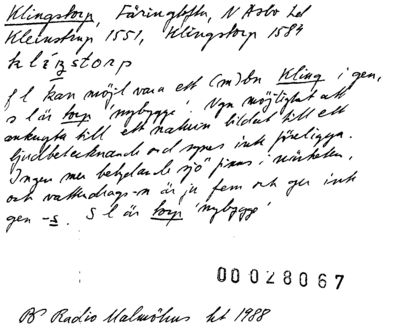 Klingstorp, Färingtofta, N Asbo hd
Kleinstrup 1551, Klingstorp 1584
klíŋstorp
f l kan möjl vara ett (m)bn Kling i gen,
s l är torp 'nybygge'. Ngn möjlighet att
anknyta till ett naturn bildat till ett
ljudbetecknande ord synes ink föreligga.
Ingen mer betydande sjö finns i närheten,
och vattendrags-n är ju fem och ger ink
gen -s. S l är torp 'nybygge'
00028067
BP Radio Malmöhus ht 1988